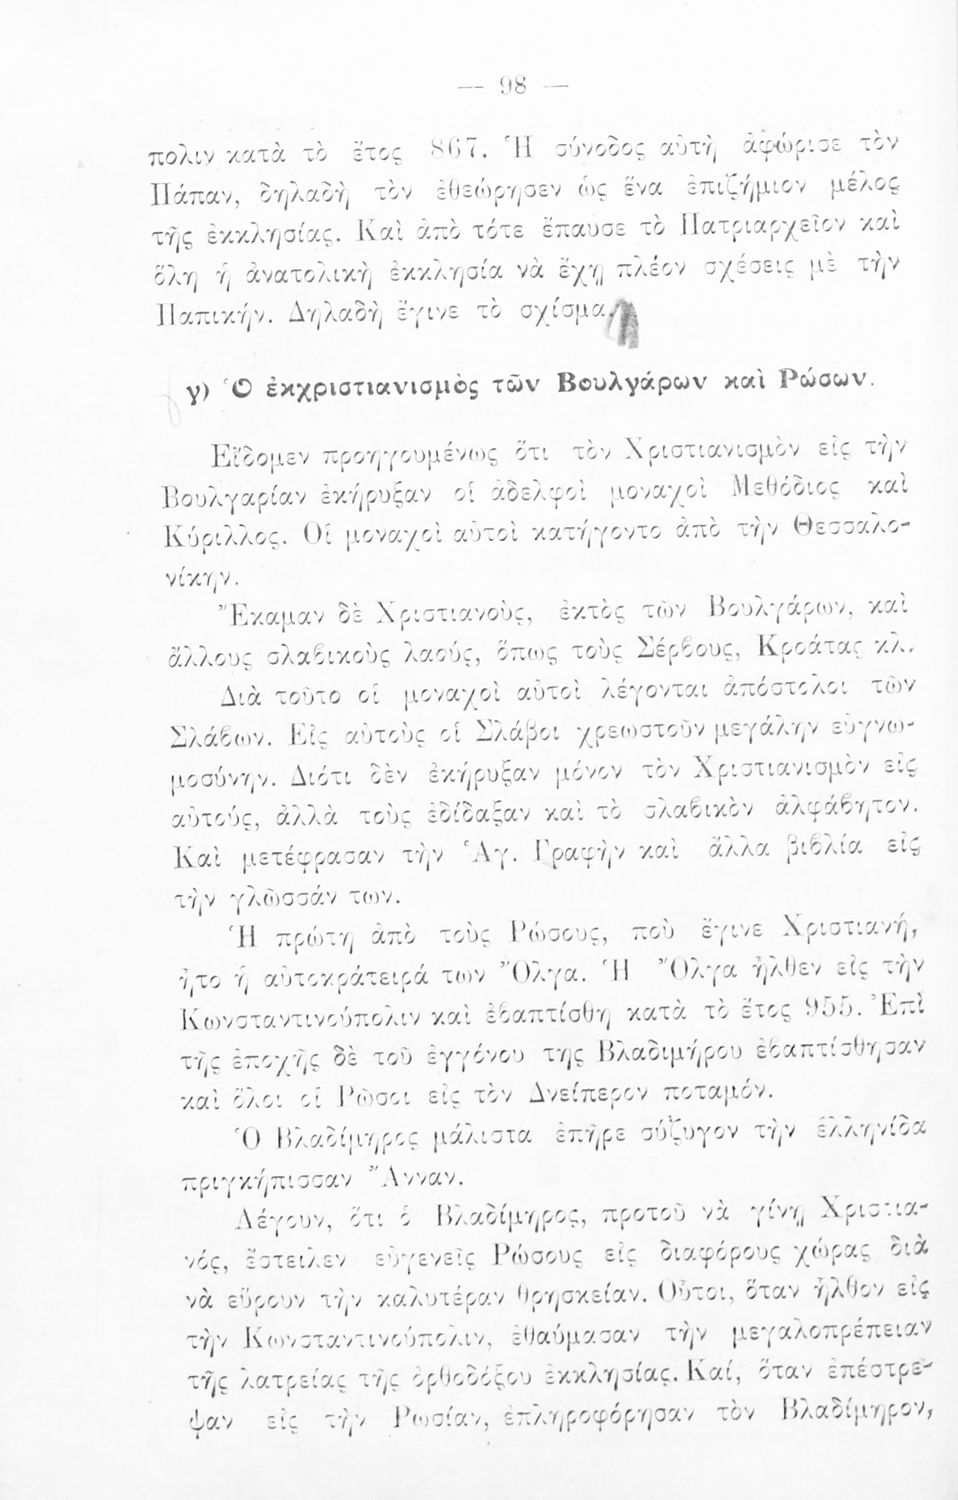 — 98 —
πολιν κατὰ τὸ ἔτος 867. Ἡ σύνοδος αὐτὴ ἀφώρισε τὸν
Πάπαν, δηλαδὴ τὸν ἐθεώρησεν ὡς ἕνα ἐπιζήμιον μέλος
τῆς ἐκκλησίας. Καὶ ἀπὸ τότε ἔπαυσε τὸ Πατριαρχεῖον καὶ
ὅλη ἡ ἀνατολικὴ ἐκκλησία νὰ ἔχῃ πλέον σχέσεις μὲ τὴν
Παπικήν. Δηλαδὴ ἔγινε τὸ σχίσμα.
γ) Ὁ ἐκχριστιανισμὸς τῶν Βουλγάρων καὶ Ρώσων.
Εἴδομεν προηγουμένως ὅτι τὸν Χριστιανισμὸν εἰς τὴν
Βουλγαρίαν ἐκήρυξαν οἱ ἀδελφοὶ μοναχοὶ Μεθόδιος καὶ
Κύριλλος. Οἱ μοναχοὶ αὐτοὶ κατήγοντο ἀπὸ τὴν Θεσσαλο-
νίκην.
Ἔκαμαν δὲ Χριστιανοὺς, ἐκτὸς τῶν Βουλγάρων, καὶ
ἄλλους σλαϐικοὺς λαούς, ὅπως τοὺς Σέρϐους, Κροάτας κλ.
Διὰ τοῦτο οἱ μοναχοὶ αὐτοὶ λέγονται ἀπόστολοι τῶν
Σλάϐων. Εἰς αὐτοὺς οἱ Σλάβοι χρεωστοῦν μεγάλην εὐγνω-
μοσύνην. Διότι δὲν ἐκήρυξαν μόνον τὸν Χριστιανισμὸν εἰς
αὐτούς, ἀλλὰ τοὺς ἐδίδαξαν καὶ τὸ σλαϐικὸν ἀλφάϐητον.
Καὶ μετέφρασαν τὴν Ἁγ. Γραφὴν καὶ ἄλλα βιϐλία εἰς
τὴν γλῶσσάν των.
Ἡ πρώτη ἀπὸ τοὺς Ρώσους, ποὺ ἔγινε Χριστιανή,
ἦτο ἡ αὐτοκράτειρά των Ὄλγα. Ἡ Ὄλγα ἦλθεν εἰς τὴν
Κωνσταντινούπολιν καὶ ἐϐαπτίσθη κατὰ τὸ ἔτος 955. Ἐπὶ
τῆς ἐποχῆς δὲ τοῦ ἐγγόνου της Βλαδιμήρου ἐϐαπτίσθησαν
καὶ ὅλοι οἱ Ρῶσοι εἰς τὸν Δνείπερον ποταμόν.
Ὁ Βλαδίμηρος μάλιστα ἐπῆρε σύζυγον τὴν ἑλληνίδα
πριγκήπισσαν Ἄνναν.
Λέγουν, ὅτι ὁ Βλαδίμηρος, προτοῦ νὰ γίνῃ Χριστια-
νός, ἔστειλεν εὐγενεῖς Ρώσους εἰς διαφόρους χώρας διὰ
νὰ εὕρουν τὴν καλυτέραν θρησκείαν. Οὗτοι, ὅταν ἦλθον εἰς
τὴν Κωνσταντινούπολιν, ἐθαύμασαν τὴν μεγαλοπρέπειαν
τῆς λατρείας τῆς ὀρθοδόξου ἐκκλησίας. Καί, ὅταν ἐπέστρε-
ψαν εἰς τὴν Ρωσίαν, ἐπληροφόρησαν τὸν Βλαδίμηρον,